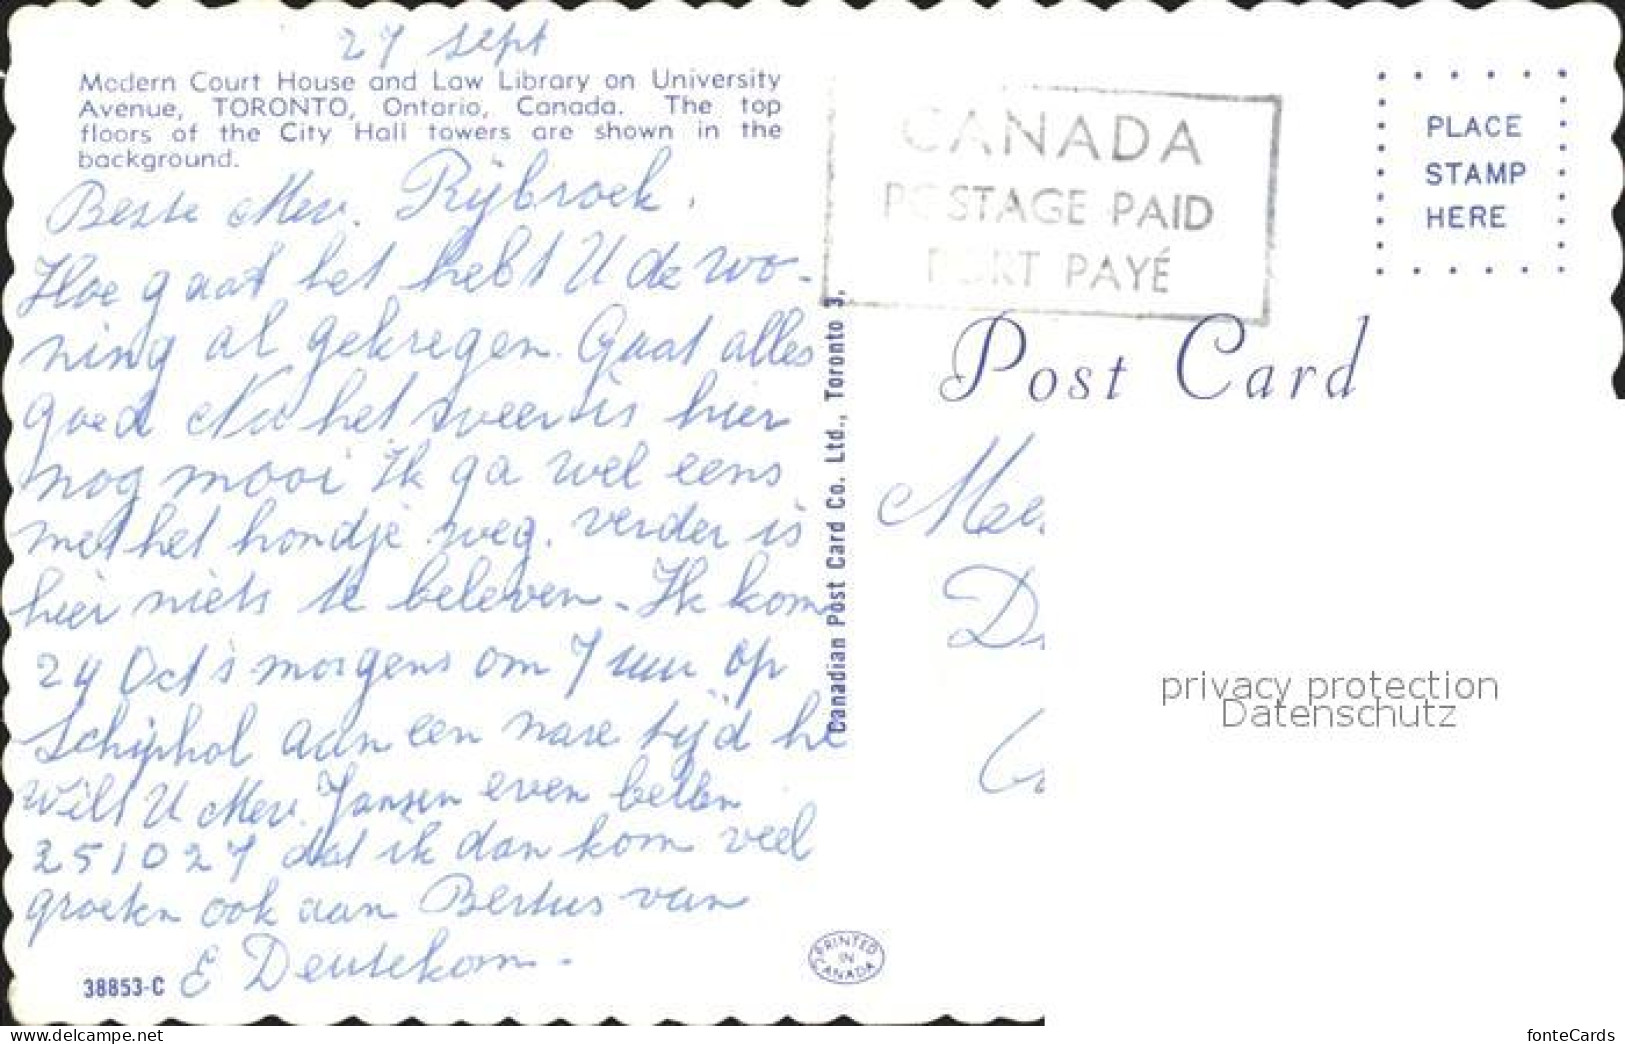 27 sept
Modern Court House and Law Library on University
Avenue, TORONTO, Ontario, Canada. The top
floors of the City Hall towers are shown in the
background.
Beste Mev. Rijbroek.
Hoe gaat het hebt U de wo-
ning al gekregen. Gaat alles
goed Nu het weer is hier
nog mooi Ik ga wel eens
met het hondje weg. verder is
hier niets te beleven. Ik kom
24 Oct s morgens om 7 uur op
Schiphol aan een nare tijd he
Wilt U Mev. Jansen even bellen
251027 dat ik dan kom veel
groeten ook aan Bertus van
E Deutekom.
38853-C
Canadian Post Card Co. Ltd., Toronto 3.
PRINTED
IN
CANADA
CANADA
POSTAGE PAID
PORT PAYÉ
PLACE
STAMP
HERE
Post Card
privacy protection
Datenschutz
delcampe.net
fonteCards